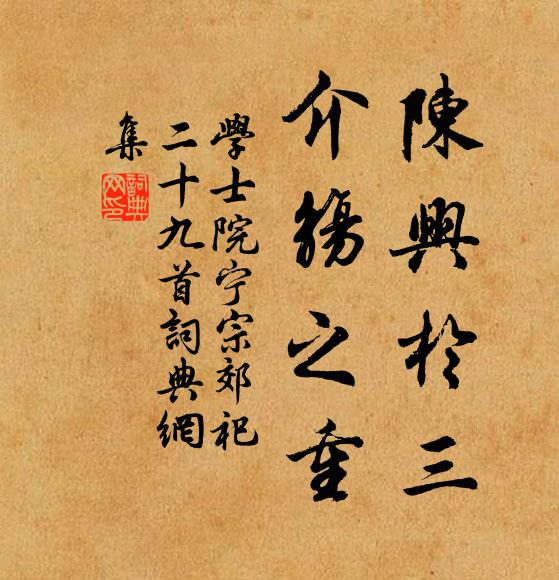 陳興於三
介觴之重
學士院宁宗郊祀
二十九首詞典網
集
詞典
网印